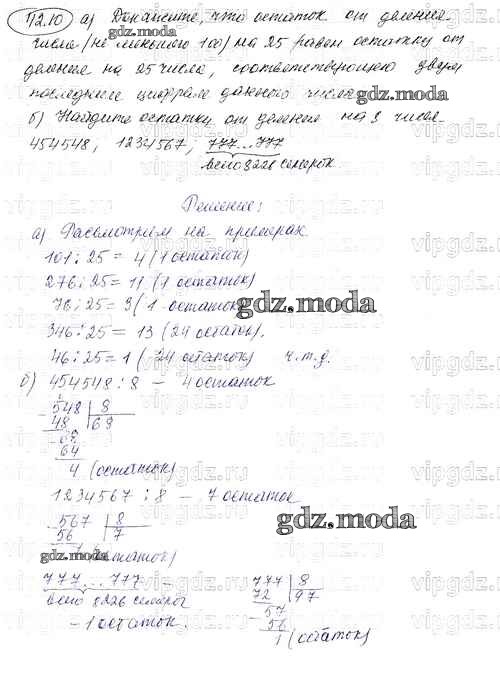 12.10 а) Докажите, что остаток от деления
числа (не меньшего 100) на 25 равен остатку от
деления на 25 числа, соответствующего двум
последним цифрам данного числа.
б) Найдите остатки от деления на 8 числа
454548, 1234567, 777...777
всего 3228 семерок
Решение:
а) Рассмотрим на примерах
101 : 25 = 4 (1 остаток)
276 : 25 = 11 (1 остаток)
76 : 25 = 3 (1 остаток)
346 : 25 = 13 (24 остаток).
46 : 25 = 1 (24 остаток) ч.т.д.
б) 454548 : 8 — 4 остаток
548 | 8
48 69
68
64
4 (остаток)
1234567 : 8 — 7 остаток
567 | 8
56 7
остаток)
777...777 —
всего семерок
— 1 остаток.
777 | 8
72 97
57
56
1 (остаток)
gdz.moda
gdz.moda
gdz.moda
gdz.moda
gdz.moda
vipgdz.ru